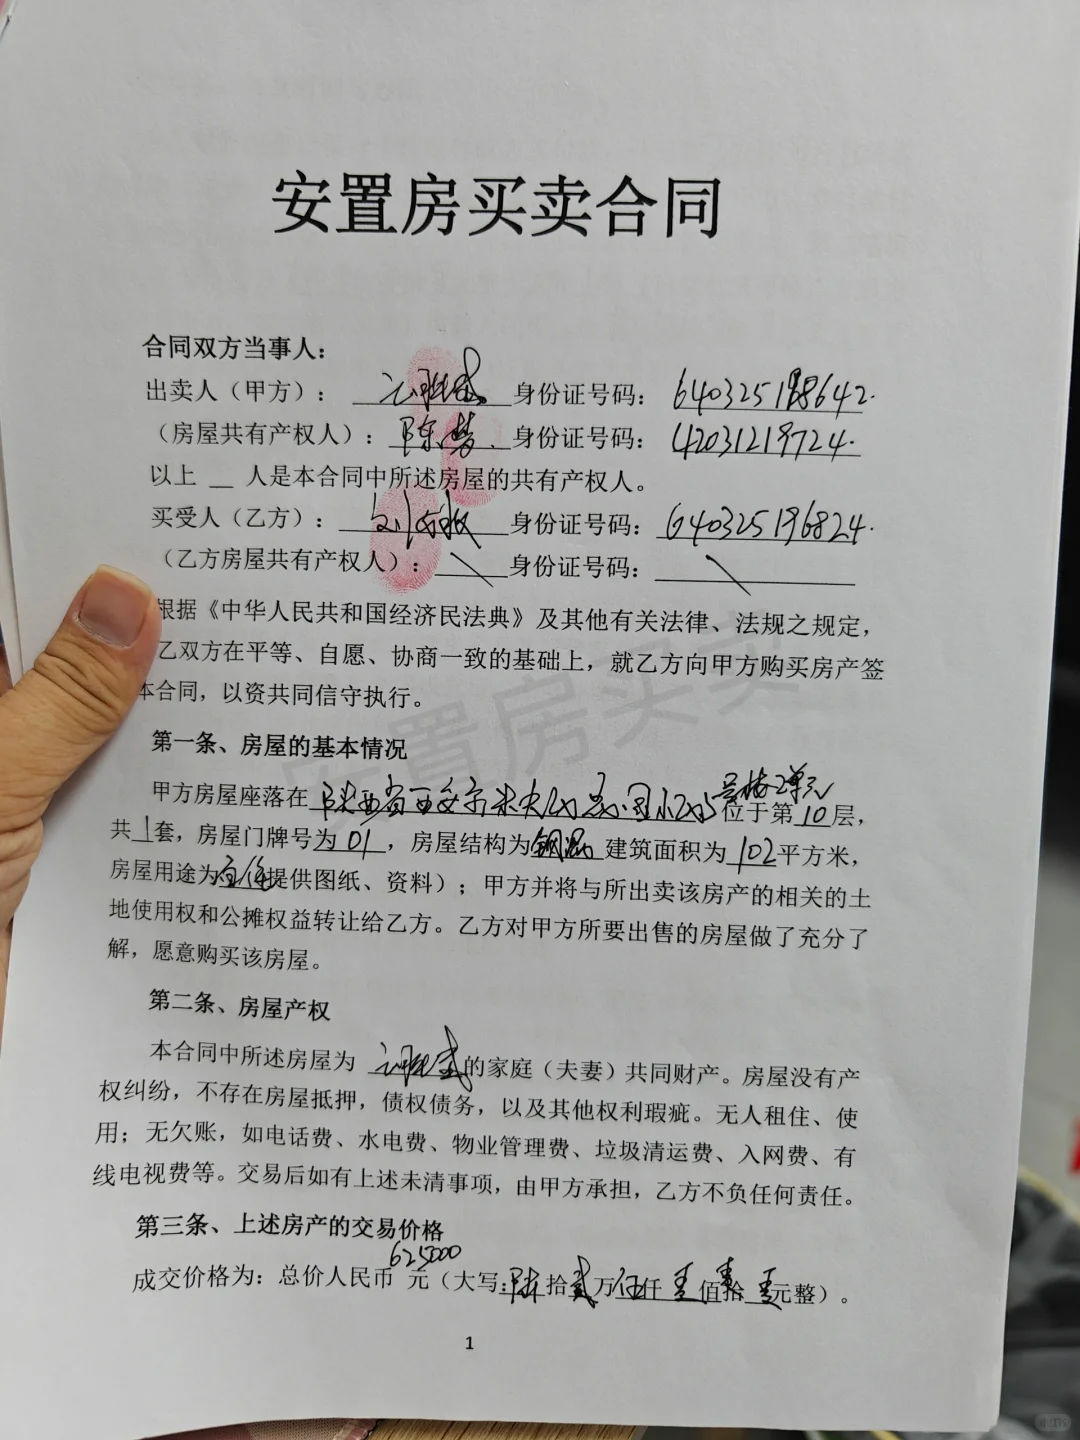 安置房买卖合同
合同双方当事人：
出卖人（甲方）： 身份证号码： 640325198642.
（房屋共有产权人）：陈梦 身份证号码： 42031219724.
以上 __ 人是本合同中所述房屋的共有产权人。
买受人（乙方）： 刘 身份证号码： 640325196824.
（乙方房屋共有产权人）：\ 身份证号码： \
根据《中华人民共和国经济民法典》及其他有关法律、法规之规定，
乙双方在平等、自愿、协商一致的基础上，就乙方向甲方购买房产签
本合同，以资共同信守执行。
安置房买卖
第一条、房屋的基本情况
甲方房屋座落在 陕西省西安市未央区 小区5号楼2单元 位于第 10 层，
共 1 套，房屋门牌号为 01 ，房屋结构为 钢混 建筑面积为 102 平方米，
房屋用途为 住宅 提供图纸、资料）；甲方并将与所出卖该房产的相关的土
地使用权和公摊权益转让给乙方。乙方对甲方所要出售的房屋做了充分了
解，愿意购买该房屋。
第二条、房屋产权
本合同中所述房屋为 的家庭（夫妻）共同财产。房屋没有产
权纠纷，不存在房屋抵押，债权债务，以及其他权利瑕疵。无人租住、使
用；无欠账，如电话费、水电费、物业管理费、垃圾清运费、入网费、有
线电视费等。交易后如有上述未清事项，由甲方承担，乙方不负任何责任。
第三条、上述房产的交易价格
成交价格为：总价人民币 625000 元（大写：陆拾贰万伍仟 佰 拾 元整）。
1